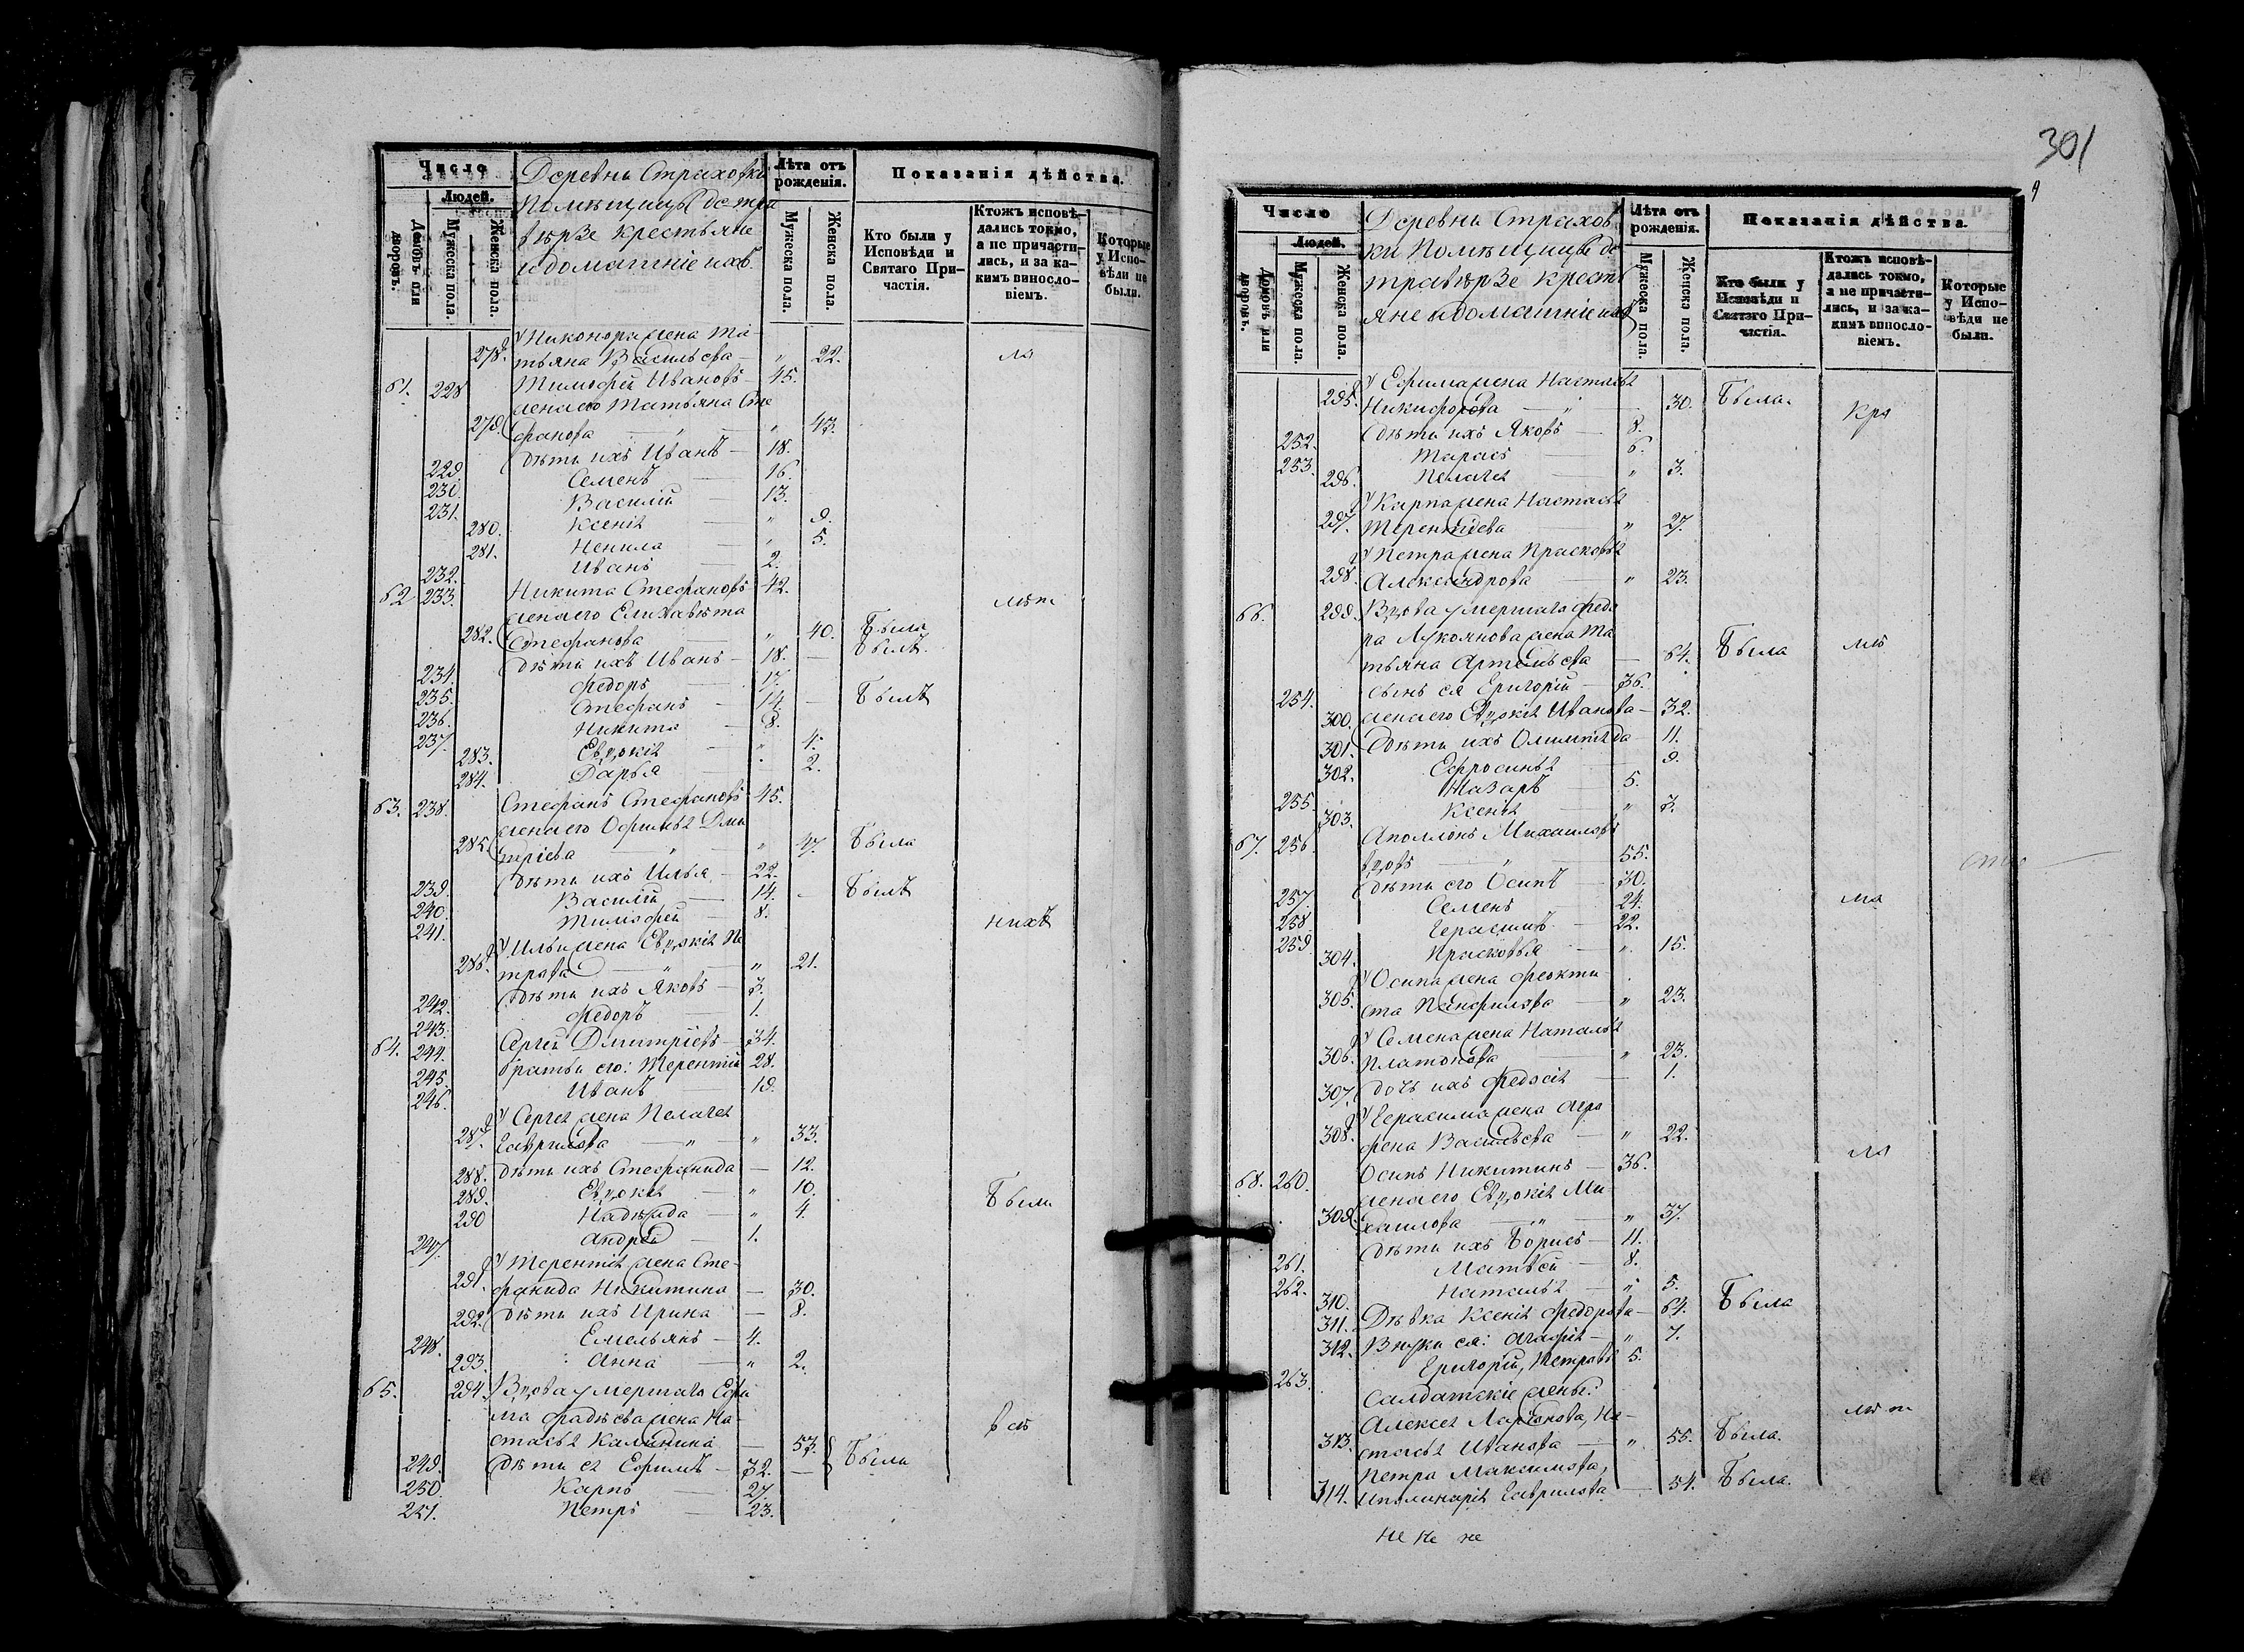 Число
Людей.
Домовъ или дворовъ.
Мужеска пола.
Женска пола.
Деревни Страховки
Помѣщицы де тра
вѣрзе крестьяне
и домашніе ихъ
Лѣта отъ рожденія.
Мужеска пола.
Женска пола.
Показанія дѣйства.
Кто были у Исповѣди и Святаго Причастія.
Ктожъ исповѣдались токмо, а не причастились, и за какимъ винословіемъ.
Которые у Исповѣди не были.
У Никонора жена Та-
278. тьяна Васильева — " 22.
61. 228 Тимофей Ивановъ — 45.
жена его Татьяна Сте
279. фанова " 43.
229. дѣти ихъ Иванъ — 18.
230. Семенъ — 16.
231. Василій — 13.
280. Ксенія — " 9.
281. Ненила — " 5.
232. Иванъ — 2.
62 233. Никита Стефановъ 42.
жена его Елизавета
282. Стефанова " 40. Была
234. дѣти ихъ Иванъ — 18. — Былъ.
235. Федоръ — 17.
236. Стефанъ — 14 — Былъ
237. Никита — 8.
283. Евдокія — " 4.
284. Дарья — " 2.
63. 238. Стефанъ Стефановъ 45.
жена его Офимья Дми
285. тріева — " 47. Была
239. дѣти ихъ Илья — 22.
240. Василій — 14. - Былъ
241. Тимофей — 8.
У Ильи жена Евдокія Пе
286. трова " 21.
242. дѣти ихъ Яковъ — 3.
243. Федоръ — 1.
64. 244. Сергій Димитріевъ — 34.
245. братья его: Терентій 28.
246. Иванъ — 19.
У Сергея жена Пелагея
287. Гаврилова — " 33.
288. дѣти ихъ Стефанида — 12.
289. Евдокія — " 10.
290 Надежда — " 4.
247. Андрей — 1.
У Терентія жена Сте-
291. фанида Никитина — 30.
292. дѣти ихъ Ирина — 8.
248. Емельянъ — 4.
293. Анна — " 2.
65. 294. Вдова умершаго Ефи
ма Фадѣева жена На-
стасья Калинина — 53. Была
249. дѣти ея Ефимъ — 32. —
250. Карпъ — 27.
251. Петръ — 23.
301
Число
Людей.
Домовъ или дворовъ.
Мужеска пола.
Женска пола.
Деревни Страхов
ки Помѣщицы де
травѣрзе кресть
яне и домашніе ихъ
Лѣта отъ рожденія.
Мужеска пола.
Женска пола.
Показанія дѣйства.
Кто были у Исповѣди и Святаго Причастія.
Ктожъ исповѣдались токмо, а не причастились, и за какимъ винословіемъ.
Которые у Исповѣди не были.
У Ефима жена Настасья
295. Никифорова — " 30. Была.
252. дѣти ихъ Яковъ — 8.
253. Тарасъ 6.
296. Пелагея " 3.
У Карпа жена Настасья
297. Терентіева " 27.
У Петра жена Прасковья
298. Александрова — " 23.
66. 299. Вдова умершаго Федо
ра Лукоянова жена Та
тьяна Артемьева — 64. Была
254. сынъ ея Григорій — 36.
300. жена его Евдокія Иванова — 32.
301. дѣти ихъ Олимпіада — 11.
302. Ефросинья 9.
255. Назаръ — 5.
303. Ксенія — " 3.
67. 256. Аполлонъ Михаиловъ
вдовъ — " 55.
257. дѣти его Осипъ — 30.
258 Семенъ — 24.
259 Герасимъ — 22.
304. Прасковья — " 15.
У Осипа жена Феокти
305. ста Панфилова — " 23.
У Семена жена Наталья
306. Платонова " 23.
307. дочь ихъ Федосія — 1.
У Герасима жена Агра
308. фена Васильева — " 22.
68. 260. Осипъ Никитинъ — 36.
жена его Евдокія Ми-
309. хаилова — " 37.
261. дѣти ихъ Борисъ — 11.
262. Матвей — 8.
310. Наталья — " 5.
311. Дѣвка Ксенія Федорова — 64. Была
312. Внуки ея: Агафія — " 7.
263. Григорій, Петровъ 5.
Салдатскіе жены:
Алексея Ларіонова, На-
313. стасья Иванова — " 55. Была.
Петра Максимова,
314. Иполинарія Гаврилова — 54. Была.
не не не